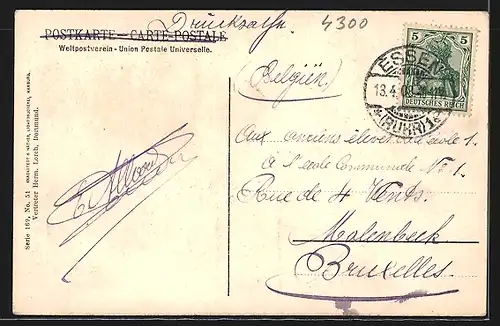 Drucksache.
4300
POSTKARTE – CARTE POSTALE
Weltpostverein - Union Postale Universelle.
5 5
DEUTSCHES REICH
ESSEN
13.4.
(RUHR)1
(Belgiën)
Aux anciens élèves école 1
à l'école Communale No 1.
Rue de 4 Vents.
Molenbeek
Bruxelles.
Serie 169, No. 51
Vertreter Herm. Lorch, Dortmund.